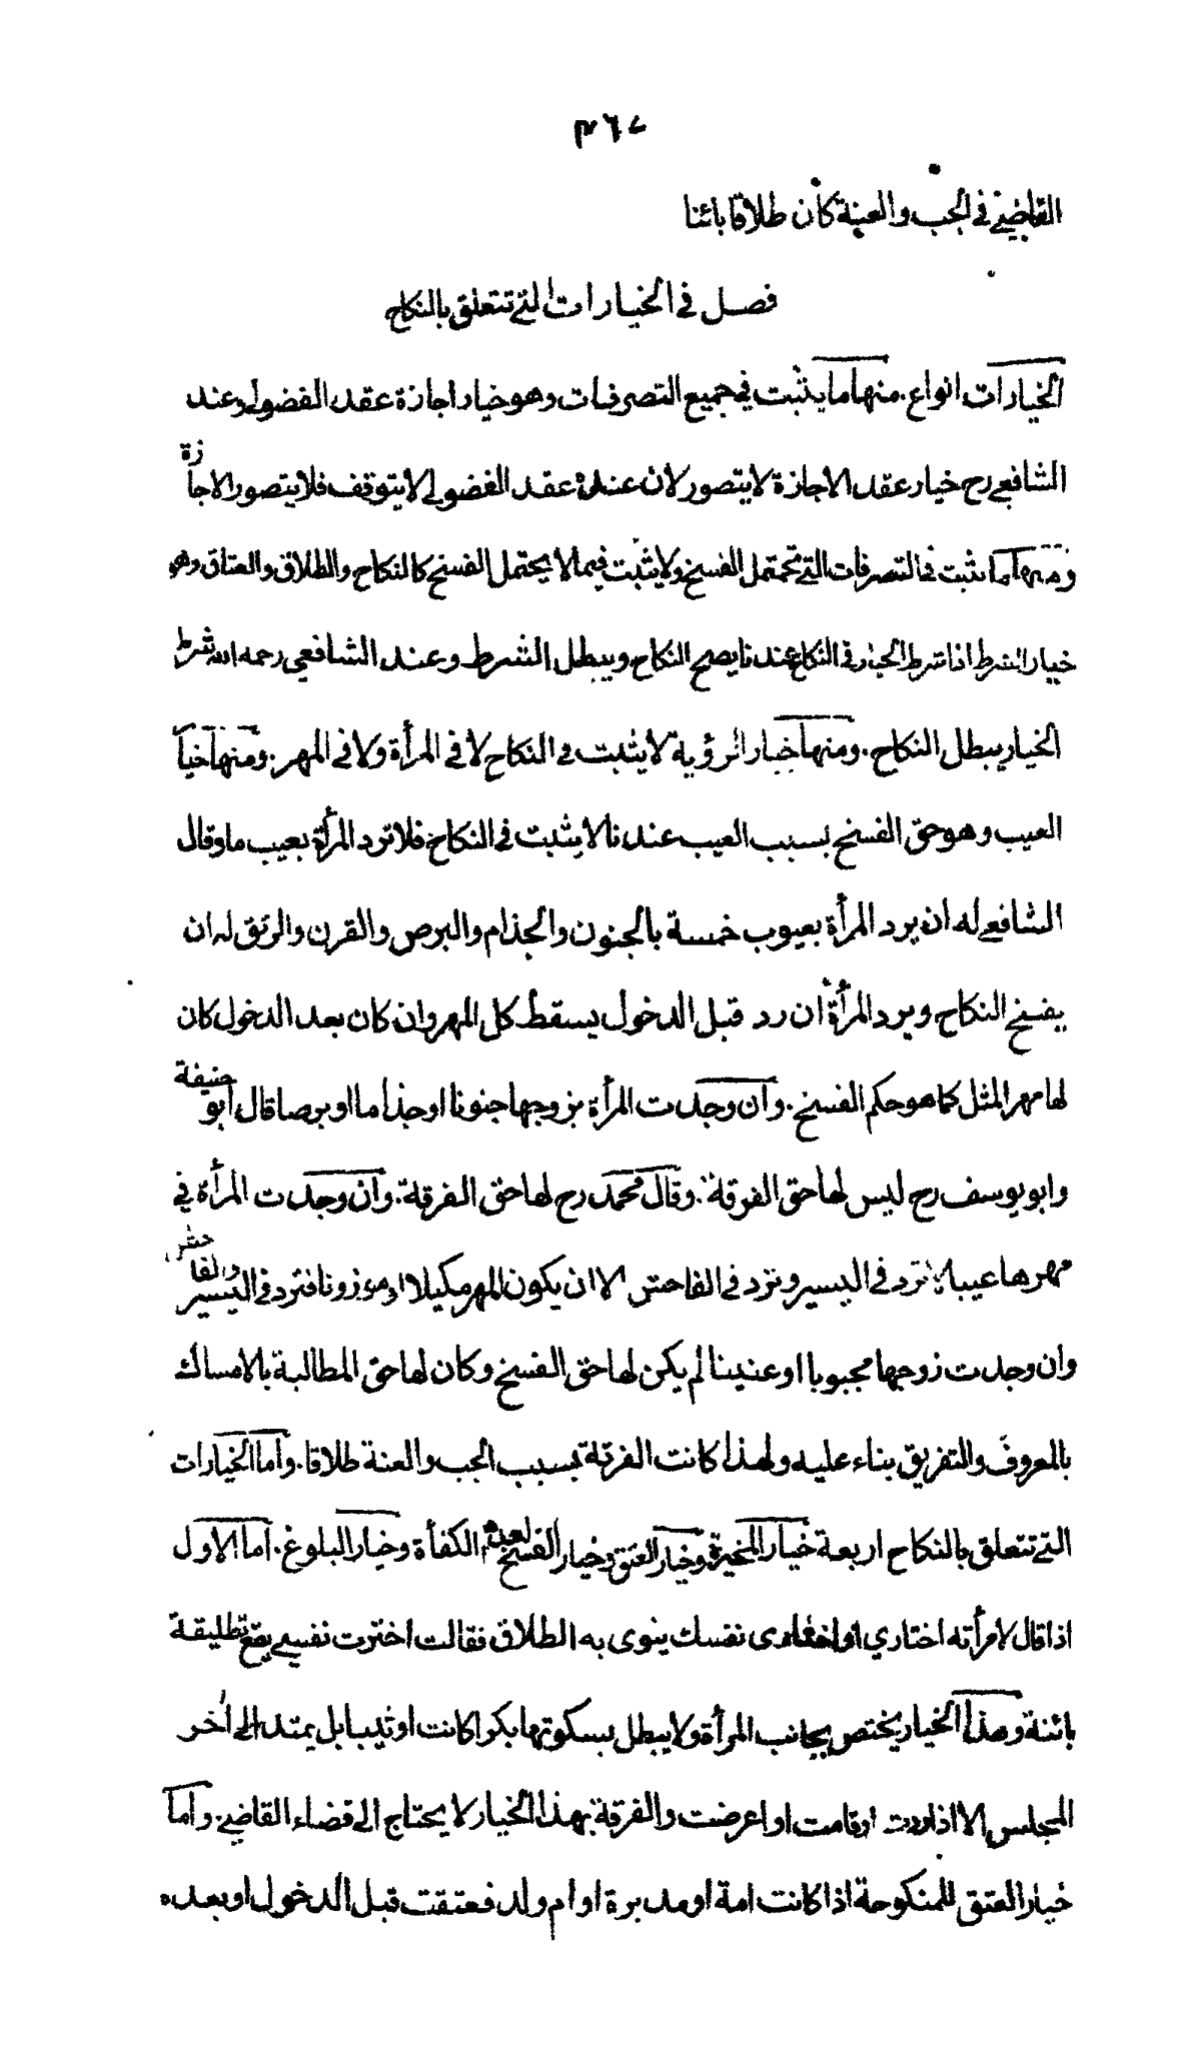 ٣٦٧
القاضي في الجب والعنة كان طلاقا بائنا
فصل في الخيارات التي تتعلق بالنكاح
الخيارات انواع. منها ما يثبت في جميع التصرفات وهو خيار اجازة عقد الفضولي وعند
الشافعي رح خيار عقد الاجازة لا يتصور لان عنده عقد الفضولي لا يتوقف فلا يتصور الاجازة
ومنها ما يثبت في التصرفات التي تحتمل الفسخ ولا يثبت فيما لا يحتمل الفسخ كالنكاح والطلاق والعتاق وهو
خيار الشرط اذا شرط الخيار في النكاح عندنا يصح النكاح ويبطل الشرط وعند الشافعي رحمه الله شرط
الخيار يبطل النكاح. ومنها خيار الرؤية لا يثبت في النكاح لا في المرأة ولا في المهر. ومنها خيا
العيب وهو حق الفسخ بسبب العيب عندنا لا يثبت في النكاح فلا ترد المرأة بعيب ما وقال
الشافعي له ان يرد المرأة بعيوب خمسة بالجنون والجذام والبرص والقرن والرتق له ان
يفسخ النكاح ويرد المرأة ان رد قبل الدخول يسقط كل المهر وان كان بعد الدخول كان
لها مهر المثل كما هو حكم الفسخ. وان وجدت المرأة بزوجها جنونا او جذاما او برصا قال ابو حنيفة
وابو يوسف رح ليس لها حق الفرقة. وقال محمد رح لها حق الفرقة. وان وجدت المرأة في
مهرها عيبا لا ترد في اليسير وترد في الفاحش الا ان يكون المهر مكيلا او موزونا فترد في اليسير والفاحش
وان وجدت زوجها مجبوبا او عنينا لم يكن لها حق الفسخ وكان لها حق المطالبة بالامساك
بالمعروف والتفريق بناء عليه ولهذا كانت الفرقة بسبب الجب والعنة طلاقا. واما الخيارات
التي تتعلق بالنكاح اربعة خيار المخيرة وخيار العتق وخيار الفسخ لعدم الكفأة وخيار البلوغ. اما الاول
اذا قال لامرأته اختاري او اختاري نفسك ينوى به الطلاق فقالت اخترت نفسي يقع تطليقة
بائنة وهذا الخيار يختص بجانب المرأة ولا يبطل بسكوتها بكرا كانت او ثيبا بل يمتد الى أخر
المجلس الا اذا ردت او قامت او اعرضت والفرقة بهذا الخيار لا يحتاج الى قضاء القاضي. واما
خيار العتق للمنكوحة اذا كانت امة او مدبرة او ام ولد فعتقت قبل الدخول او بعده